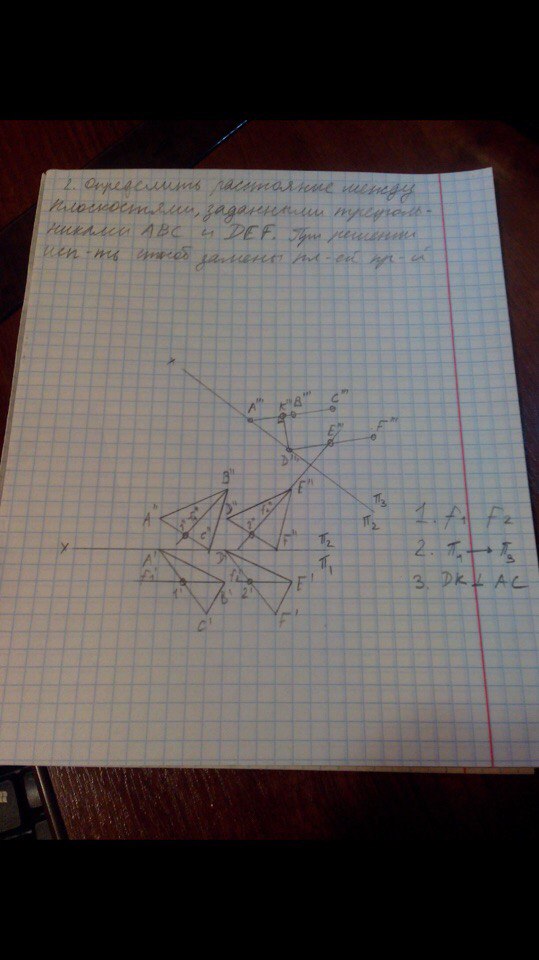 2. Определить расстояние между
плоскостями, заданными треуголь-
никами ABC и DEF. При решении
исп-ть способ замены пл-ей пр-й
x
A''' K''' B''' C'''
E''' F'''
D'''
B'' E''
A'' D''
1'' f1'' C'' F''
П3
П2
x П2
П1
A' D'
f1' 1' B' 2' E'
C' F'
1. f1 f2
2. П1 → П3
3. DK ⊥ AC